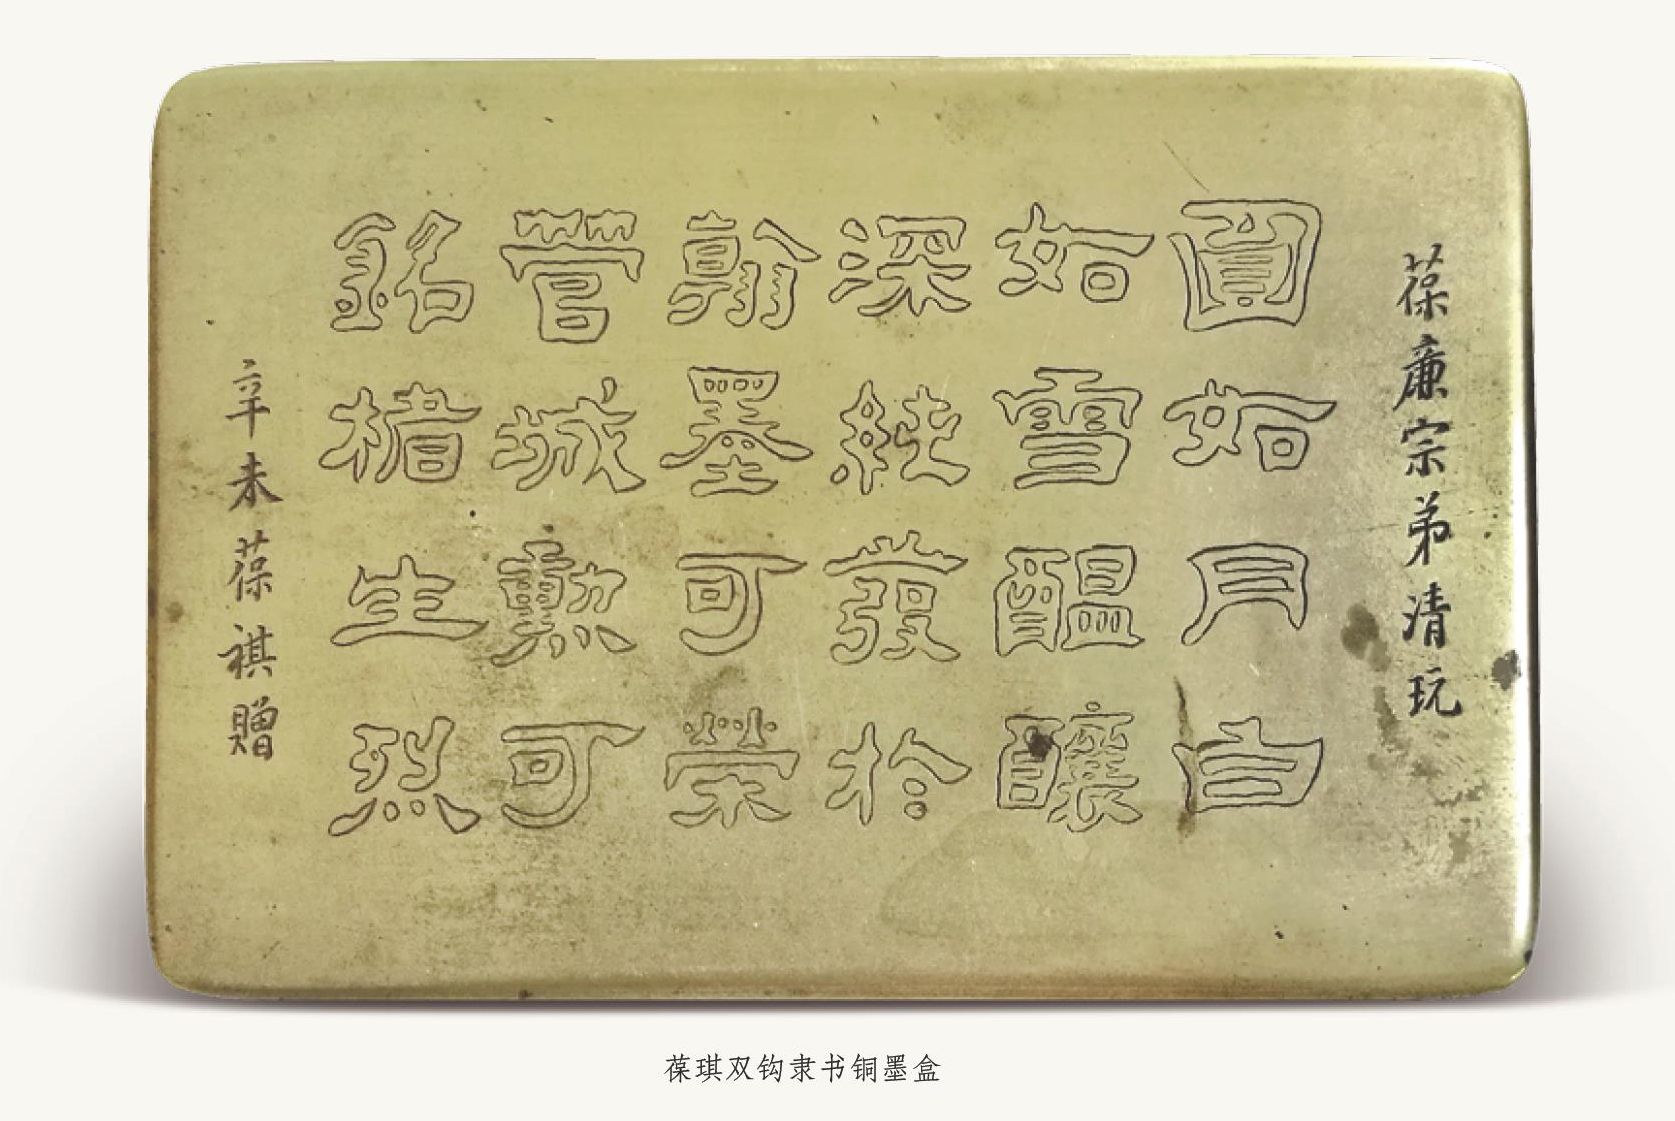 葆廉宗弟清玩
圓如月白
如雪醞釀
深純發於
翰墨可榮
管城勲可
銘楮生烈
辛未葆祺贈
葆琪双钩隶书铜墨盒